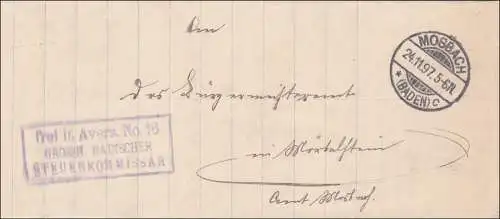 An
MOSBACH
24.11.97.5-6N.
* (BADEN) C
das Bürgermeisteramt
frei lt. Avers. No. 16
GROSSH. BADISCHER
STEUERKOMMISSAR
in Mörtelstein
Amt Mosbach.